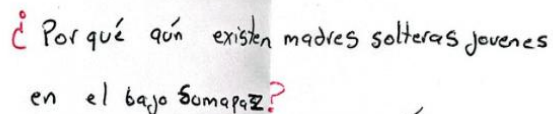 ¿ Por qué aún existen madres solteras jovenes
en el bajo Sumapaz?